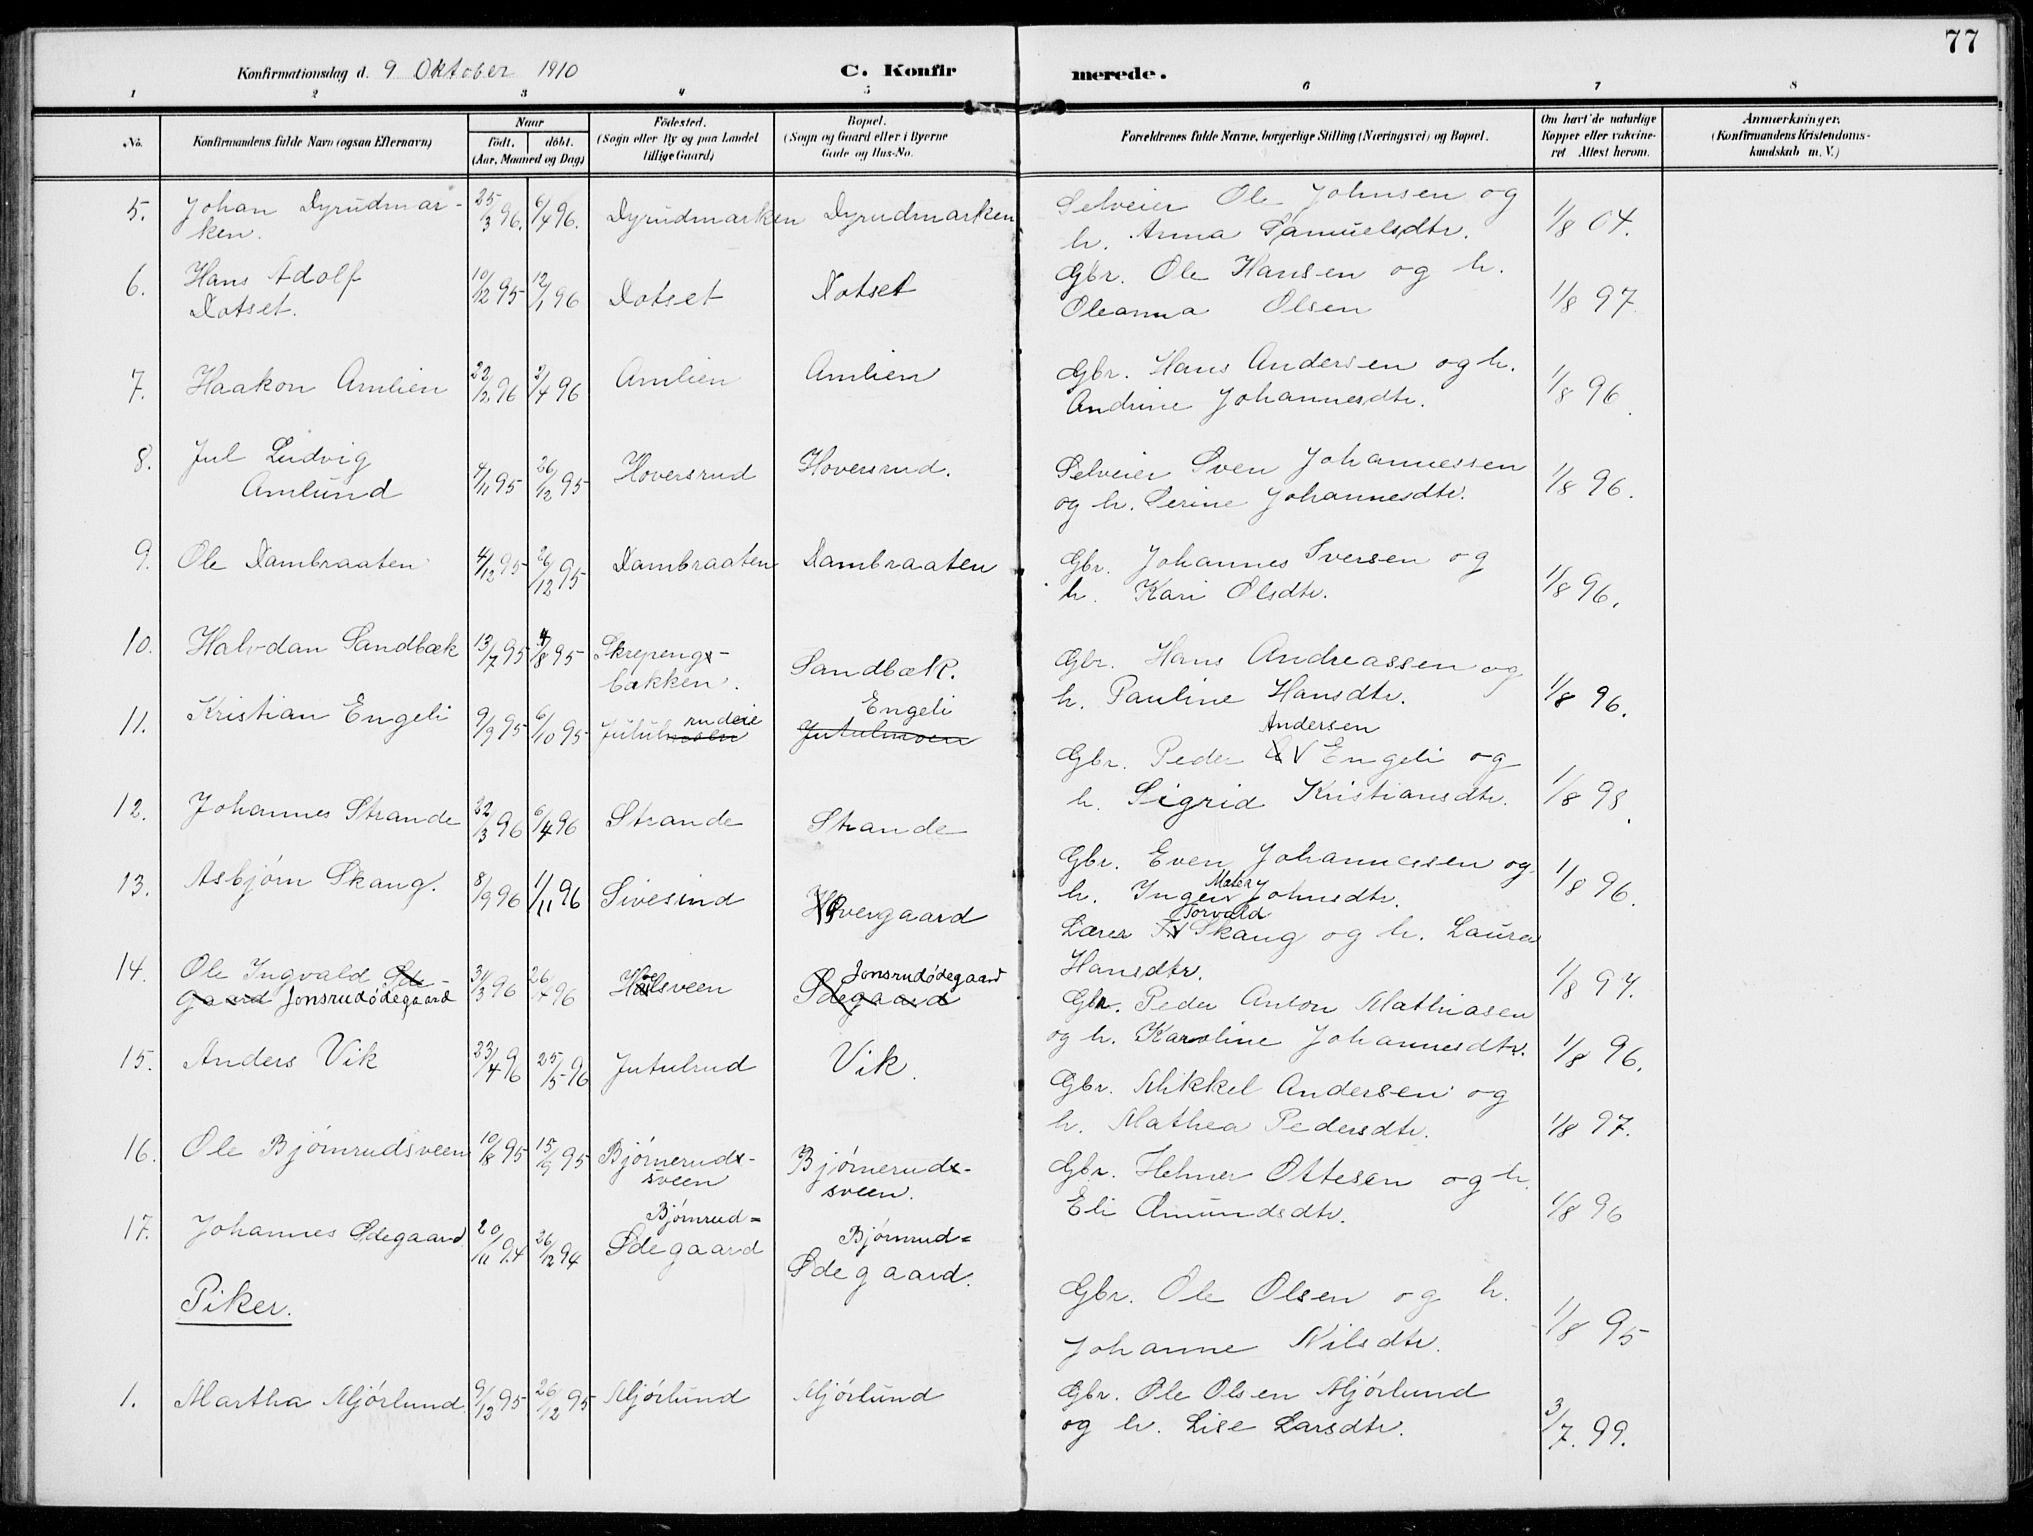 77
Konfirmationsdag d. 9 Oktober 1910 C. Konfir merede.
1 2 3 4 5 6 7 8
No. Konfirmandens fulde Navn (ogsaa Efternavn) Naar født. døbt. (Aar, Maaned og Dag) Fødested. (Sogn eller By og paa Landet tillige Gaard) Bopæl. (Sogn og Gaard eller i Byerne Gade og Hus-No. Forældrenes fulde Navne, borgerlige Stilling (Næringsvei) og Bopæl. Om havt de naturlige Kopper eller vakcineret Attest herom. Anmærkninger. (Konfirmandens Kristendomskundskab m. V.)
5. Johan Dyrudmar- 25/3 96. 6/4 96. Dyrudmarken Dyrudmarken Selveier Ole Johnsen og 1/8 04.
ken. h. Anna Samuelsdtr.
6. Hans Adolf 10/12 95 12/1 96 Dotset Dotset Gbr. Ole Hansen og h. 1/8 97
Dotset. Oleanna Olsen
7. Haakon Amlien 22/12 96 3/4 96 Amlien Amlien Gbr. Hans Andersen og h. 1/8 96.
Andrine Johannesdtr.
8. Jul Ludvig 4/11 95 26/12 95 Hoversrud Hoversrud. Selveier Sven Johannessen 1/8 96.
Amlund og h. Serine Johannesdtr.
9. Ole Dambraaten 4/12 95 26/12 95 Dambraaten Dambraaten Gbr. Johannes Iversen og 1/8 96.
h. Kari Olsdtr.
10. Halvdan Sandbæk 13/7 95 4/8 95 Skrepengs- Sandbæk. Gbr. Hans Andreassen og 1/8 96.
bakken. h. Pauline Hansdtr.
11. Kristian Engeli 9/9 95 6/10 95 Jutulmoen rudeie Jutulmoen Engeli Gbr. Peder Andersen Engeli og 1/8 98.
h. Sigrid Kristiansdtr.
12. Johannes Strande 22/3 96 6/4 96 Strande Strande Gbr. Even Johannesen og 1/8 96.
h. Inger Mater Johnsdtr.
13. Asbjørn Skang. 8/9 96 1/11 96 Sivesind Overgaard Lærer Torvald Skang og h. Laura 1/8 97.
Hansdtr.
14. Ole Ingvald Øde- 31/3 96 26/4 96 Ødegaard Jonsrudødegaard Gbr. Peder Anton Mathiasen 1/8 96.
gaard Jonsrudødegaard og h. Karoline Johannesdtr.
15. Anders Vik 23/4 96 25/5 96 Jutulrud Vik. Gbr. Mikkel Andersen og 1/8 97.
h. Mathea Pedersdtr.
16. Ole Bjørnrudsveen 10/8 95 15/9 95 Bjørneruds- Bjørneruds- Gbr. Helmer Ottesen og h. 1/8 96
sveen sveen. Eli Amundsdtr.
17. Johannes Ødegaard 20/11 94 26/12 94 Bjørnrud= Ødegaard Bjørnrud= Ødegaard. Gbr. Ole Olsen og h. 1/8 95
Johanne Nilsdtr.
Piker.
1. Martha Mjørlund 9/12 95 26/12 95 Mjørlund Mjørlund Gbr. Ole Olsen Mjørlund 3/7. 99.
og h. Lise Larsdtr.